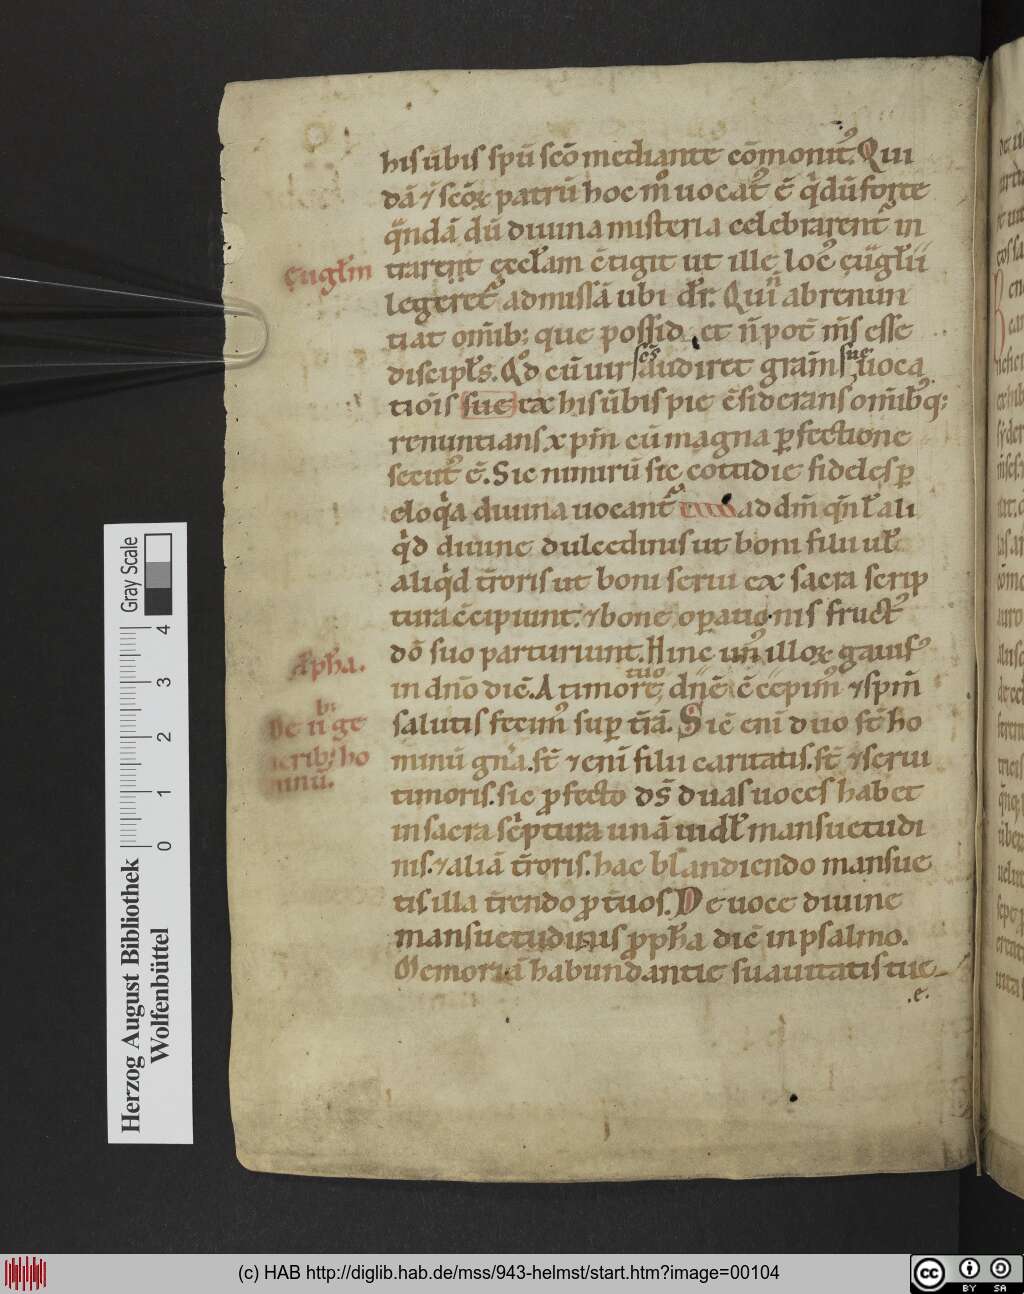 his ūbis spū scō mediante cōmonit᷒. Qui
dā ⁊ scōꝝ patrū hoc mͦ uocat᷒ ē qͥdū forte
q̄ndā dū diuina misteria celebrarent᷒ in
ęuglm̄
trarent ęccłam c̄tigit ut ille loc᷒ ęuuglii
legeret᷒ ad missā ubi dr̄. Qui ñ abrenun
tiat om̄ib; que possid&, et ñ pot̄ m̄s esse
discipłs. Qͦd cū uir sc̄s audiret gram̄ sue uoca
tiōis sue ex his ūbis pie c̄siderans om̄ib; q;
renuntians xpm̄ cū magna ꝑfectione
secut᷒ ē. Sic nimirū sic cottidie fideles ꝑ
eloq̄a diuina uocant᷒ ad dm̄ qn̄ ł ali
qͥd diuine dulcedinis ut boni filii uł
aliqͥd t̄roris ut boni serui ex sacra scrip
tura c̄cipiunt. ⁊ bone oꝑationis fruct᷒
A᷒pħa.
dō suo parturiunt. Hinc un᷒ illoꝝ gauis᷒
in dn̄o dic̄. A timore tuo dn̄e c̄cepim᷒ ⁊ spm̄
De ii ge
nerib; ho
minū.
salutis fecim᷒ suꝑ t̄rā. Sic enī duo st̄ ho
minū gn̄a. st̄ ⁊ enī filii caritatis. st̄ ⁊ serui
timoris. sic ꝓfecto ds̄ duas uoces habet
in sacra sc̄ptura unā uidł mansuetudi
nis. ⁊ aliā t̄roris. hac blandiendo mansue
tis illa t̄rendo ꝓt̄uos. De uoce diuine
mansuetudinis ꝓpħa dic̄ in psalmo.
Memoriā habundantie suauitatis tue
.e.
Herzog August Bibliothek
Wolfenbüttel
Gray Scale
0 1 2 3 4
(c) HAB http://diglib.hab.de/mss/943-helmst/start.htm?image=00104
cc BY SA